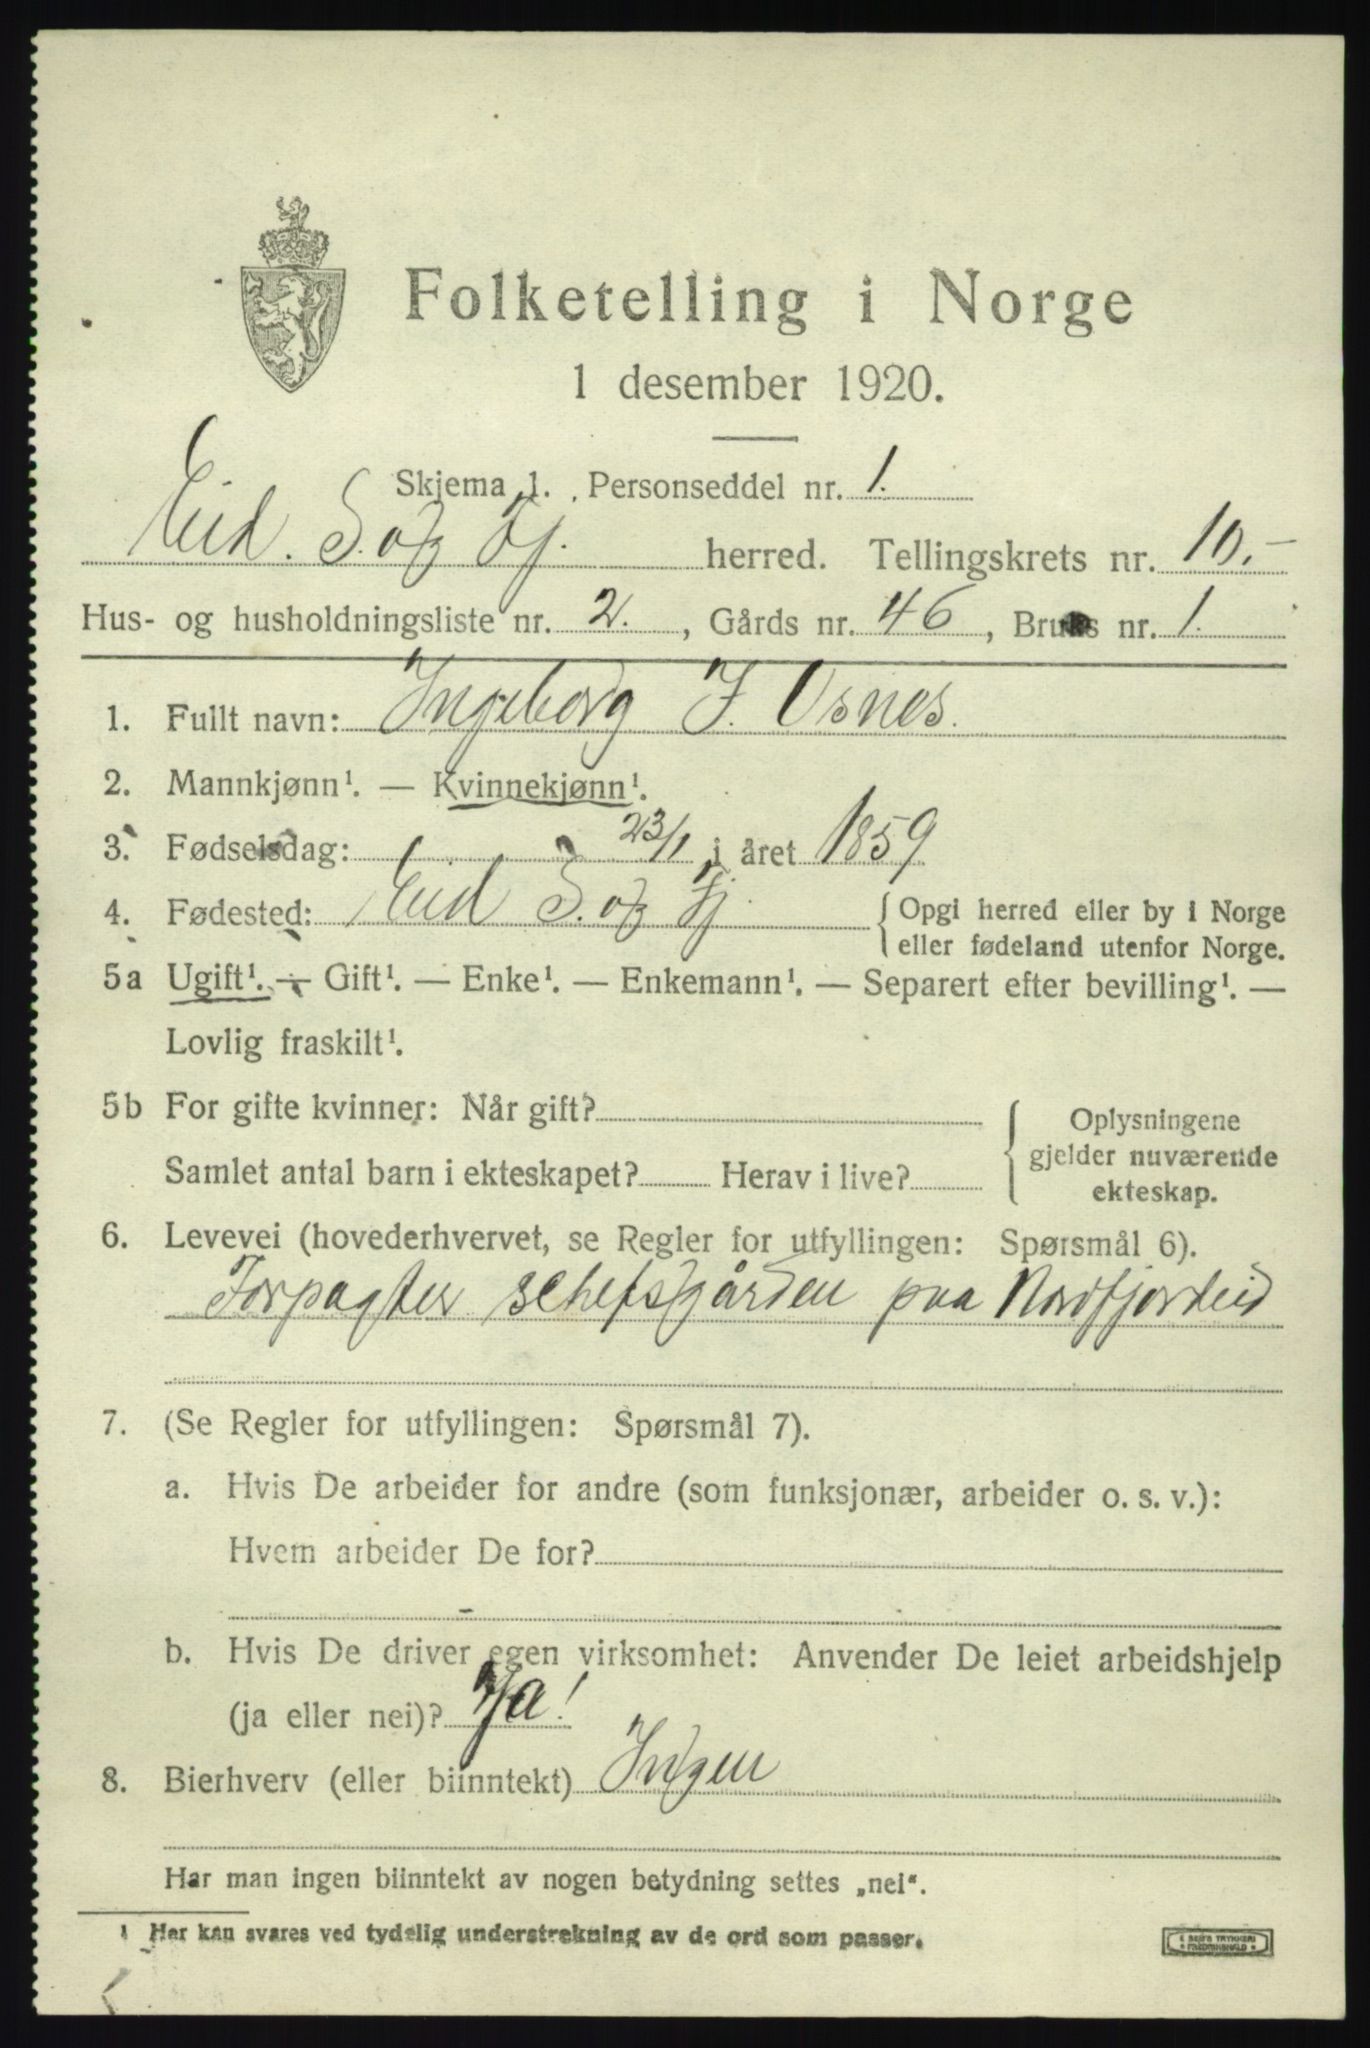 Folketelling i Norge
1 desember 1920.
Skjema 1. Personseddel nr. 1.
Eid. S. og Fj. herred. Tellingskrets nr. 10.-
Hus- og husholdningsliste nr. 2. , Gårds nr. 46 , Bruks nr. 1.
1. Fullt navn: Ingeborg J. Osnes.
2. Mannkjønn¹. — Kvinnekjønn¹.
3. Fødselsdag: 23/1 i året 1859
4. Fødested: Eid S. og Fj. { Opgi herred eller by i Norge
eller fødeland utenfor Norge.
5a Ugift¹. — Gift¹. — Enke¹. — Enkemann¹. — Separert efter bevilling¹. —
Lovlig fraskilt¹.
5b For gifte kvinner: Når gift?
Samlet antal barn i ekteskapet? Herav i live?
{ Oplysningene
gjelder nuværende
ekteskap.
6. Levevei (hovederhvervet, se Regler for utfyllingen: Spørsmål 6).
Forpagter schefsgården paa Nordfjordeid
7. (Se Regler for utfyllingen: Spørsmål 7).
a. Hvis De arbeider for andre (som funksjonær, arbeider o. s. v.):
Hvem arbeider De for?
b. Hvis De driver egen virksomhet: Anvender De leiet arbeidshjelp
(ja eller nei)? Ja!
8. Bierhverv (eller biinntekt) Ingen
Har man ingen biinntekt av nogen betydning settes „nei“.
¹ Her kan svares ved tydelig understrekning av de ord som passer.